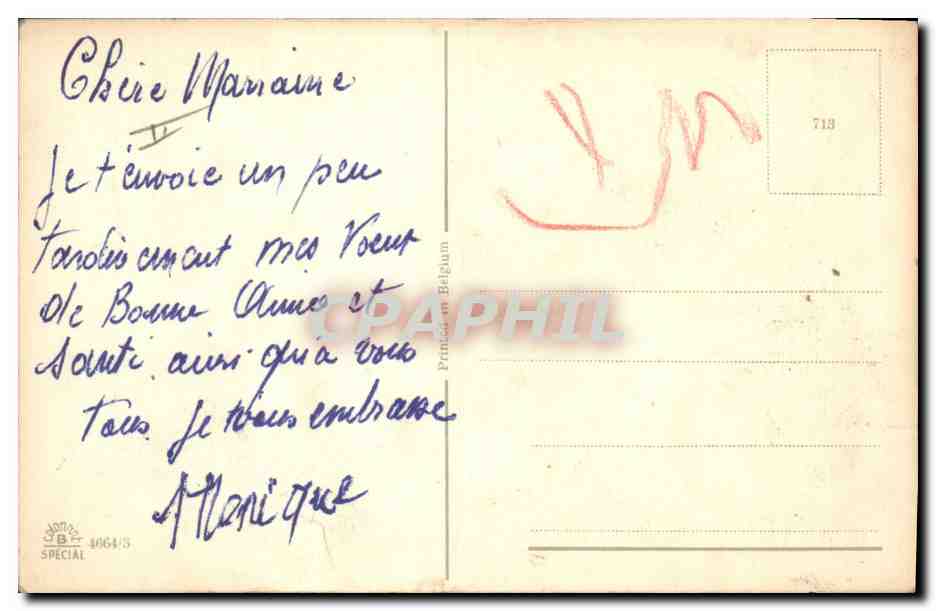 Chère Marraine
II
Je t'envoie un peu
tardivement mes Voeux
de Bonne Année et
Santé, ainsi qu'à vous
tous. Je vous embrasse
Monique
713
Printed in Belgium
CPAPHIL
B
SPÉCIAL
4664/3